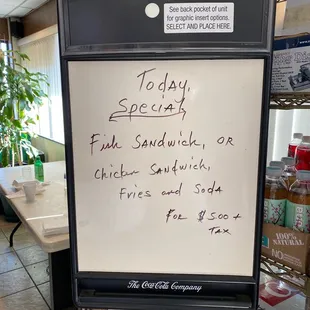 See back pocket of unit
for graphic insert options.
SELECT AND PLACE HERE.
Today,
Special
Fish Sandwich, OR
Chicken Sandwich,
Fries and Soda
For $5.00 +
TAX
The Coca-Cola Company
100%
NATURAL
NO